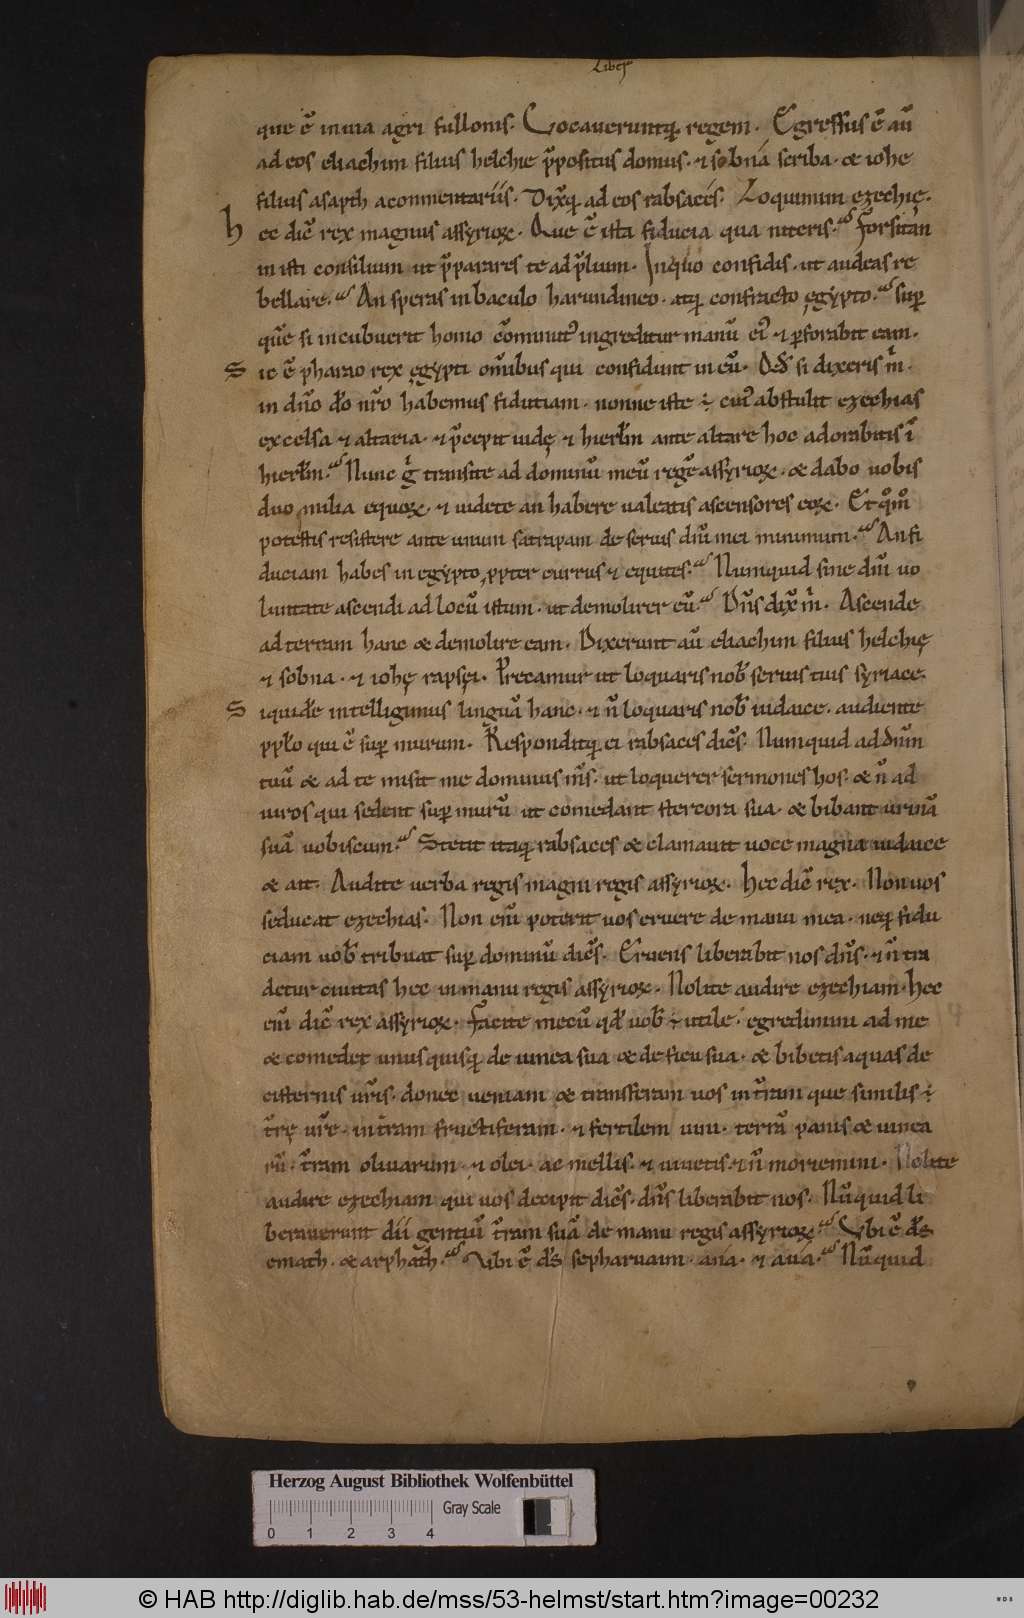 Liber
que ē in uia agri fullonis. Vocaueruntq; regem. Egressus ē aū
ad eos eliachim filius helchie p̄positus domus. ⁊ sobna scriba. & iohe
filius asaph a commentariis. Dixq; ad eos rabsaces. Loquimini ezechię.
hec dic̄ rex magnus assyrioꝝ. Que ē ista fiducia qua niteris. Forsitan
inisti consilium ut p̄parares te ad p̄lium. In quo confidis. ut audeas re
bellare. An speras in baculo harundineo. atq; confracto ęgypto. sup
quē si incubuerit homo cōminut' ingreditur manū ei' ⁊ pforabit eam.
Sic ē pharao rex ęgypti om̄ibus qui confidunt in eū. Qd si dixeris m̄.
in dn̄o d̄o nr̄o habemus fidutiam. nonne iste ÷ cui' abstulit ezechias
excelsa ⁊ altaria. ⁊ p̄cepit iudę ⁊ hierl̄m ante altare hoc adorabitis ī
hierl̄m. Nunc g̊ transite ad dominū meū regē assyrioꝝ. & dabo uobis
duo milia equoꝝ. ⁊ uidete an habere ualeatis ascensores eoꝝ. Et qm̊o
potestis resistere ante unum satrapam de seruis dn̄i mei minimum. An fi
duciam habes in egypto ppter currus ⁊ equites. Numquid sine dn̄i uo
luntate ascendi ad locū istum. ut demolirer eū. Dn̄s dix̄ m̄. Ascende
ad terram hanc & demolire eam. Dixerunt aū eliachim filius helchię
⁊ sobna. ⁊ iohę rapsęi. Precamur ut loquaris nob̄ seruis tuis syriace.
Siquidē intelligimus linguā hanc. ⁊ n̄ loquaris nob̄ iudaice. audiente
pplo qui ē sup murum. Responditq; ei rabsaces dicēs. Numquid ad dn̄m
tuū & ad te misit me dominus m̄s. ut loquerer sermones hos. & n̄ ad
uiros qui sedent sup murū ut comedant stercora sua. & bibant urinā
suā uobiscum. Stetit itaq; rabsaces & clamauit uoce magna iudaice
& ait. Audite uerba regis magni regis assyrioꝝ. hec dic̄ rex. Non uos
seducat ezechias. Non eni̅ poterit uos eruere de manu mea. neq; fidu
ciam uob̄ tribuat sup dominū dicēs. Eruens liberabit nos dn̄s. ⁊ n̄ tra
detur ciuitas hec in manu regis assyrioꝝ. Nolite audire ezechiam. hec
eni̅ dic̄ rex assyrioꝝ. Facite mecū qd̄ uob̄ ÷ utile. egredimini ad me
& comedet unusquisq; de uinea sua & de ficu sua. & bibetis aquas de
cisternis ur̄is. donec ueniam & transferam uos in t̄ram que similis ÷
t̄rę ur̄e. in t̄ram fructiferam. ⁊ fertilem uini. terrā panis & uinea
rū. t̄ram oliuarum. ⁊ olei. ac mellis. ⁊ uiuetis. ⁊ n̄ moriemini. Nolite
audire ezechiam qui uos decipit dicēs. dn̄s liberabit nos. Nūquid li
berauerunt dii gentiū t̄ram suā de manu regis assyrioꝝ. Vbi ē d̄s
emath. & arphath. Vbi ē d̄s sepharuaim. ana. ⁊ aua. Nūquid
Herzog August Bibliothek Wolfenbüttel
Gray Scale
0 1 2 3 4
© HAB http://diglib.hab.de/mss/53-helmst/start.htm?image=00232